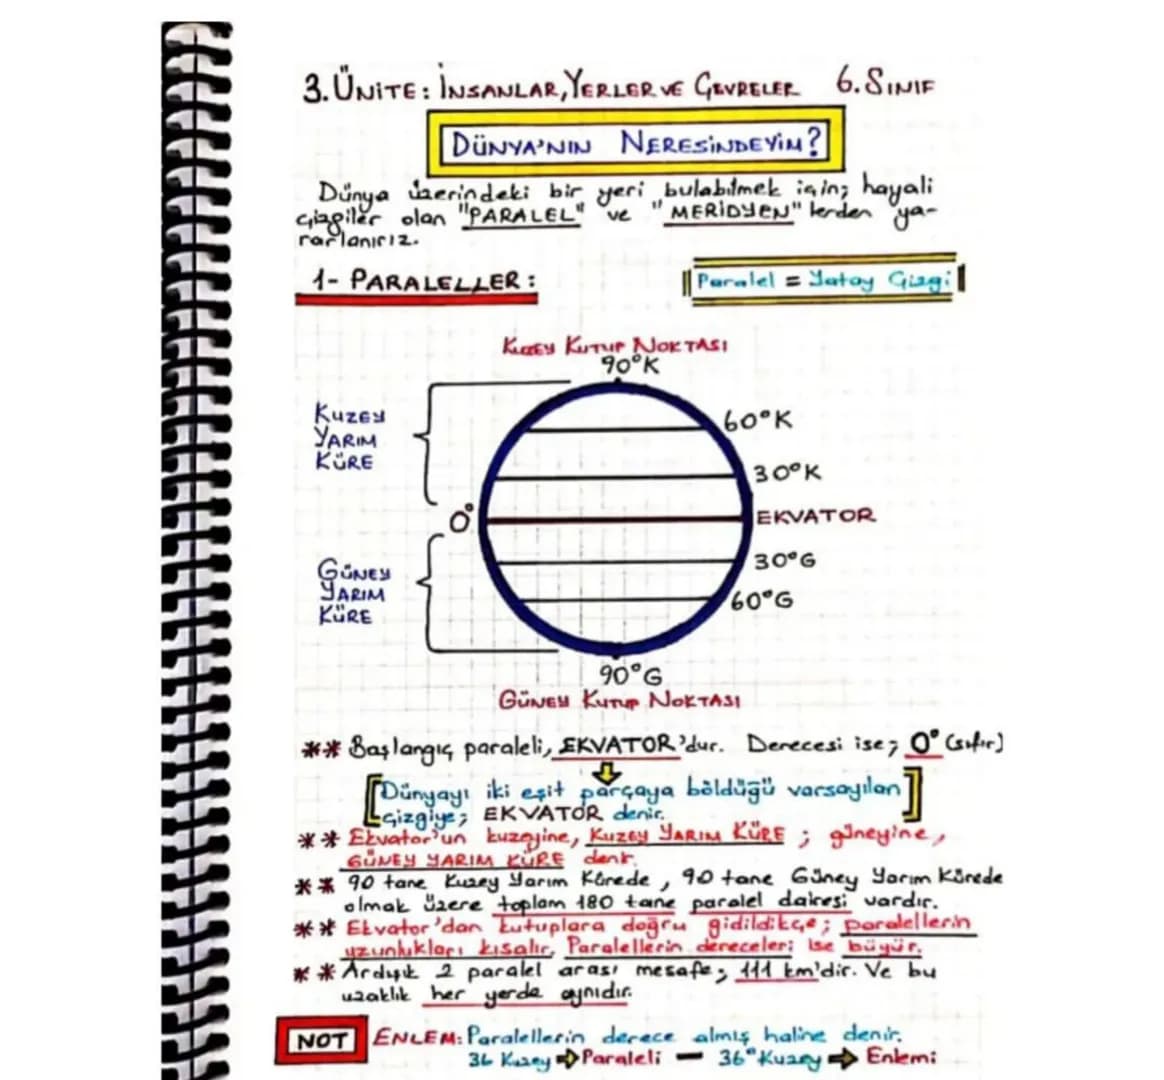 3. ÜNİTE: İNSANLAR, YERLER VE ÇEVRELER 6. SINIF
DÜNYA'NIN NERESİNDEYİM?
Dünya üzerindeki bir yeri bulabilmek için; hayali
çizgiler olan "PARALEL" ve "MERİDYEN" lerden ya-
rarlanırız.
1- PARALELLER:
Paralel = Yatay Çizgi
KUZEY KUTUP NOKTASI
90°K
KUZEY
YARIM
KÜRE
60°K
30°K
0°
EKVATOR
GÜNEY
YARIM
KÜRE
30°G
60°G
90°G
GÜNEY KUTUP NOKTASI
** Başlangıç paraleli, EKVATOR'dur. Derecesi ise; 0° (sıfır)
Dünyayı iki eşit parçaya böldüğü varsayılan
çizgiye; EKVATOR denir.
** Ekvator'un kuzeyine, KUZEY YARIM KÜRE ; güneyine,
GÜNEY YARIM KÜRE denir.
** 90 tane Kuzey Yarım Kürede, 90 tane Güney Yarım Kürede
olmak üzere toplam 180 tane paralel dairesi vardır.
** Ekvator'dan kutuplara doğru gidildikçe; paralellerin
uzunlukları kısalır, Paralellerin dereceleri ise büyür.
** Ardışık 2 paralel arası mesafe; 111 km'dir. Ve bu
uzaklık her yerde aynıdır.
NOT ENLEM: Paralellerin derece almış haline denir.
36 Kuzey ⇒ Paraleli – 36° Kuzey ⇒ Enlemi